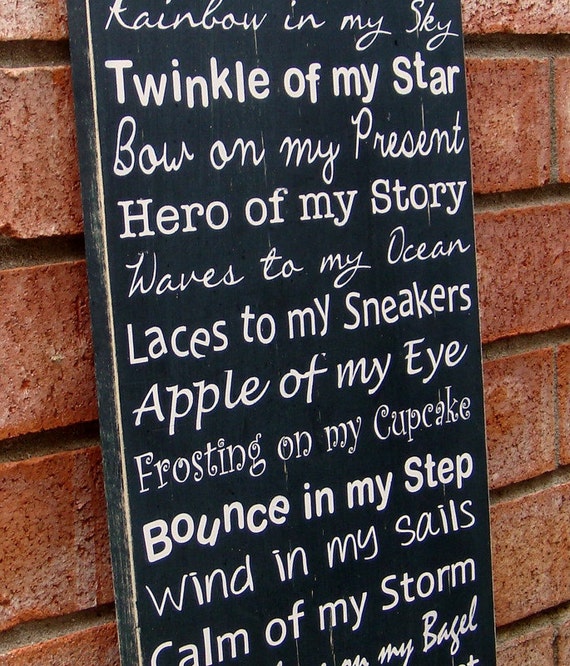 Rainbow in my Sky
Twinkle of my Star
Bow on my Present
Hero of my Story
Waves to my Ocean
Laces to my Sneakers
Apple of my Eye
Frosting on my Cupcake
Bounce in my Step
Wind in my Sails
Calm of my Storm
on my Bagel